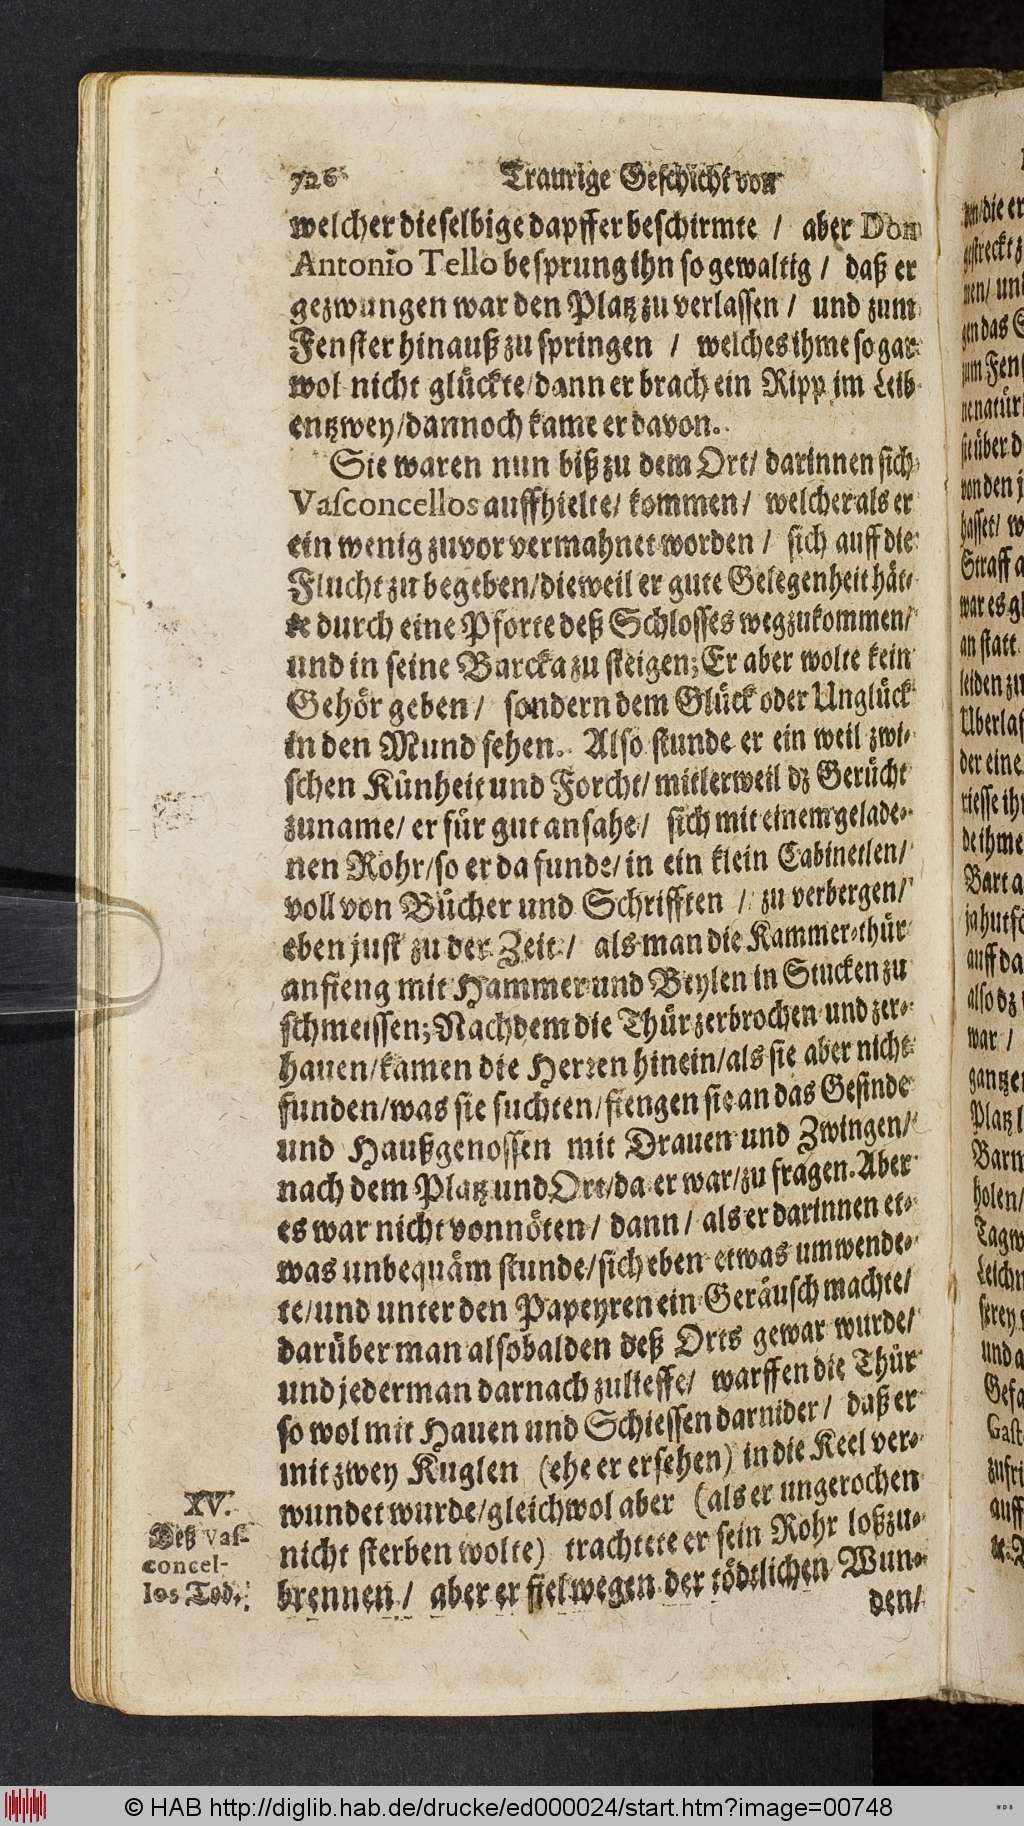 726 Traurige Geschicht von
welcher dieselbige dapffer beschirmte / aber Don
Antonio Tello besprung ihn so gewaltig / daß er
gezwungen war den Platz zu verlassen / und zum
Fenster hinauß zu springen / welches ihme so gar
wol nicht glückte / dann er brach ein Ripp im Leib
entzwey / dannoch kame er davon.
Sie waren nun biß zu dem Ort / darinnen sich
Vasconcellos auffhielte / kommen / welcher als er
ein wenig zuvor vermahnet worden / sich auff die
Flucht zu begeben / dieweil er gute Gelegenheit hät-
te durch eine Pforte deß Schlosses wegzukommen /
und in seine Barcka zu steigen; Er aber wolte kein
Gehör geben / sondern dem Glück oder Unglück
in den Mund sehen. Also stunde er ein weil zwi-
schen Künheit und Forcht / mitlerweil dz Gerücht
zuname / er für gut ansahe / sich mit einem gelade-
nen Rohr / so er da funde / in ein klein Cabinetlen /
voll von Bücher und Schrifften / zu verbergen /
eben just zu der Zeit / als man die Kammer-thür
anfieng mit Hammer und Beylen in Stucken zu
schmeissen; Nachdem die Thür zerbrochen und zer-
hauen / kamen die Herren hinein / als sie aber nicht
funden / was sie suchten / fiengen sie an das Gesinde
und Haußgenossen mit Drauen und Zwingen /
nach dem Platz und Ort / da er war / zu fragen. Aber
es war nicht vonnöten / dann / als er darinnen et-
was unbequäm stunde / sich eben etwas umwende-
te / und unter den Papeyren ein Geräusch machte /
darüber man alsobalden deß Orts gewar wurde /
und jederman darnach zulieffe / warffen die Thür
so wol mit Hauen und Schiessen darnider / daß er
mit zwey Kuglen (ehe er ersehen) in die Keel ver-
wundet wurde / gleichwol aber (als er ungerochen
nicht sterben wolte) trachtete er sein Rohr loßzu-
brennen / aber er fiel wegen der tödtlichen Wun-
den /
XV.
Deß Vas-
concel-
los Tod.
© HAB http://diglib.hab.de/drucke/ed000024/start.htm?image=00748